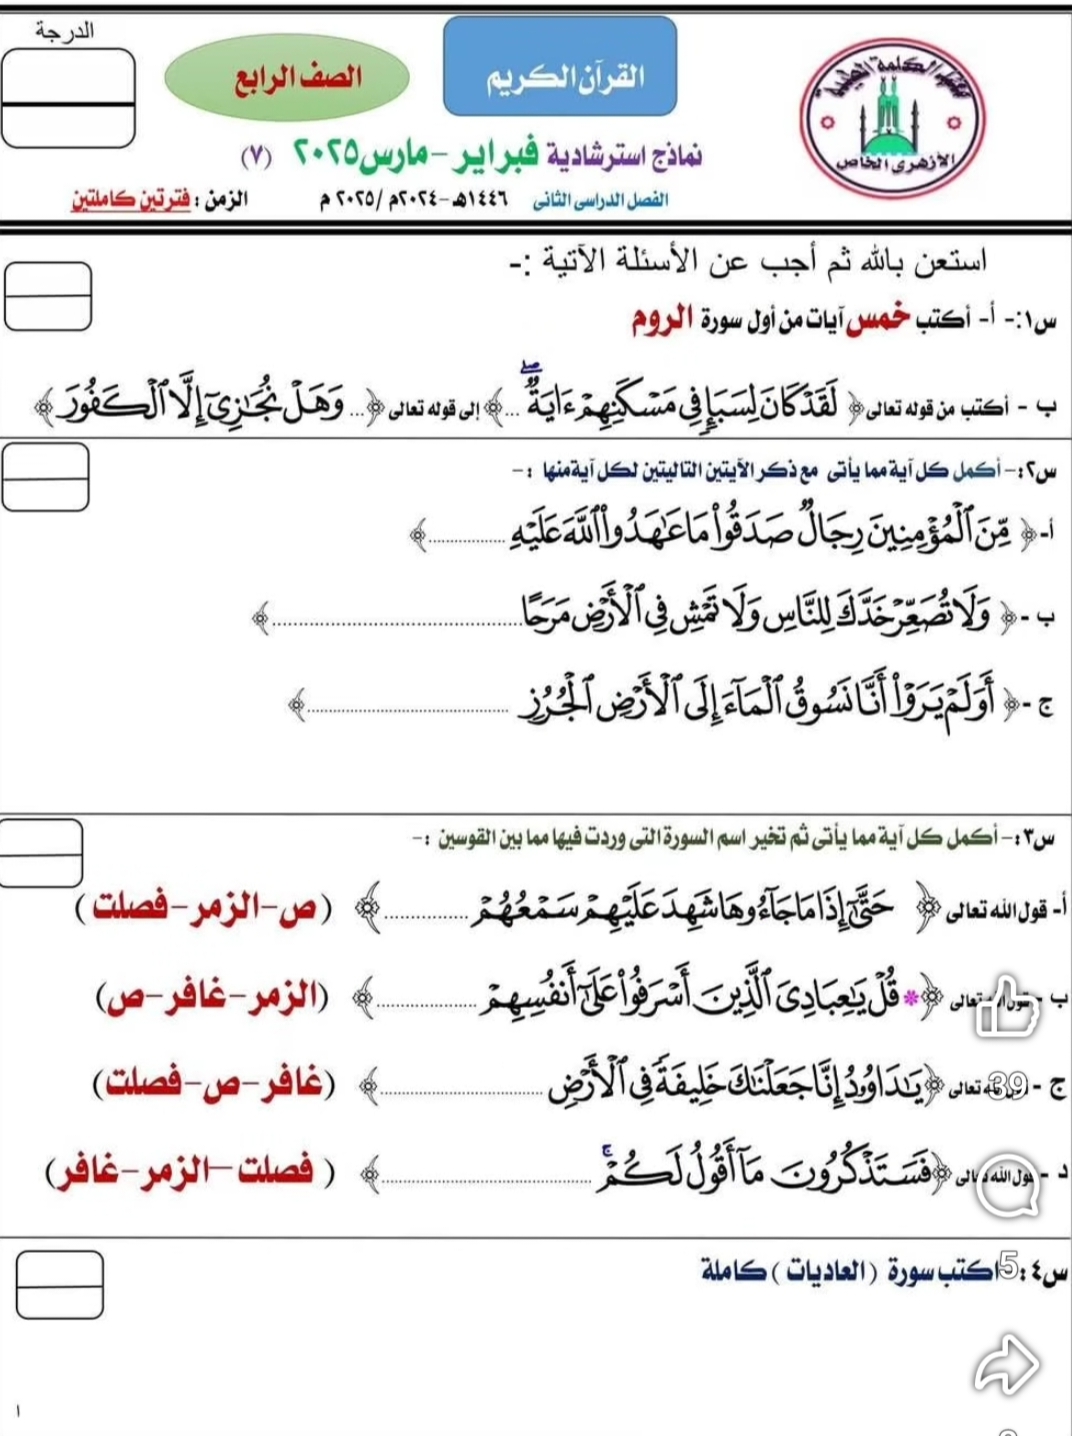 الدرجة
معهد الكلمة الطيبة
الأزهرى الخاص
القرآن الكريم
الصف الرابع
نماذج استرشادية فبراير - مارس ٢٠٢٥ (٧)
الفصل الدراسى الثانى ١٤٤٦هـ - ٢٠٢٤م /٢٠٢٥ م الزمن : فترتين كاملتين
استعن بالله ثم أجب عن الأسئلة الآتية :-
س١:- أ- أكتب خمس آيات من أول سورة الروم
ب - أكتب من قوله تعالى ﴿ لَقَدْ كَانَ لِسَبَإٍ فِي مَسْكَنِهِمْ ءَايَةٌ ۖ ... ﴾ إلى قوله تعالى ﴿ ... وَهَلْ نُجَٰزِيٓ إِلَّا ٱلْكَفُورَ ﴾
س٢:- أكمل كل آية مما يأتى مع ذكر الآيتين التاليتين لكل آية منها :-
أ- ﴿ مِّنَ ٱلْمُؤْمِنِينَ رِجَالٌ صَدَقُوا۟ مَا عَٰهَدُوا۟ ٱللَّهَ عَلَيْهِ ............ ﴾
ب - ﴿ وَلَا تُصَعِّرْ خَدَّكَ لِلنَّاسِ وَلَا تَمْشِ فِي ٱلْأَرْضِ مَرَحًا ............ ﴾
ج - ﴿ أَوَلَمْ يَرَوْا۟ أَنَّا نَسُوقُ ٱلْمَآءَ إِلَى ٱلْأَرْضِ ٱلْجُرُزِ ............ ﴾
س٣:- أكمل كل آية مما يأتى ثم تخير اسم السورة التى وردت فيها مما بين القوسين :-
أ- قول الله تعالى ﴿ حَتَّىٰٓ إِذَا مَا جَآءُوهَا شَهِدَ عَلَيْهِمْ سَمْعُهُمْ ............ ﴾ (ص-الزمر-فصلت )
ب - قول الله تعالى ﴿ * قُلْ يَٰعِبَادِىَ ٱلَّذِينَ أَسْرَفُوا۟ عَلَىٰٓ أَنفُسِهِمْ ............ ﴾ (الزمر-غافر-ص)
ج - تعالى ﴿ يَٰدَاوُۥدُ إِنَّا جَعَلْنَٰكَ خَلِيفَةً فِي ٱلْأَرْضِ ............ ﴾ (غافر-ص-فصلت)
د - قول الله تعالى ﴿ فَسَتَذْكُرُونَ مَآ أَقُولُ لَكُمْ ۚ ............ ﴾ ( فصلت-الزمر-غافر)
س٤: اكتب سورة ( العاديات ) كاملة
39
5
١